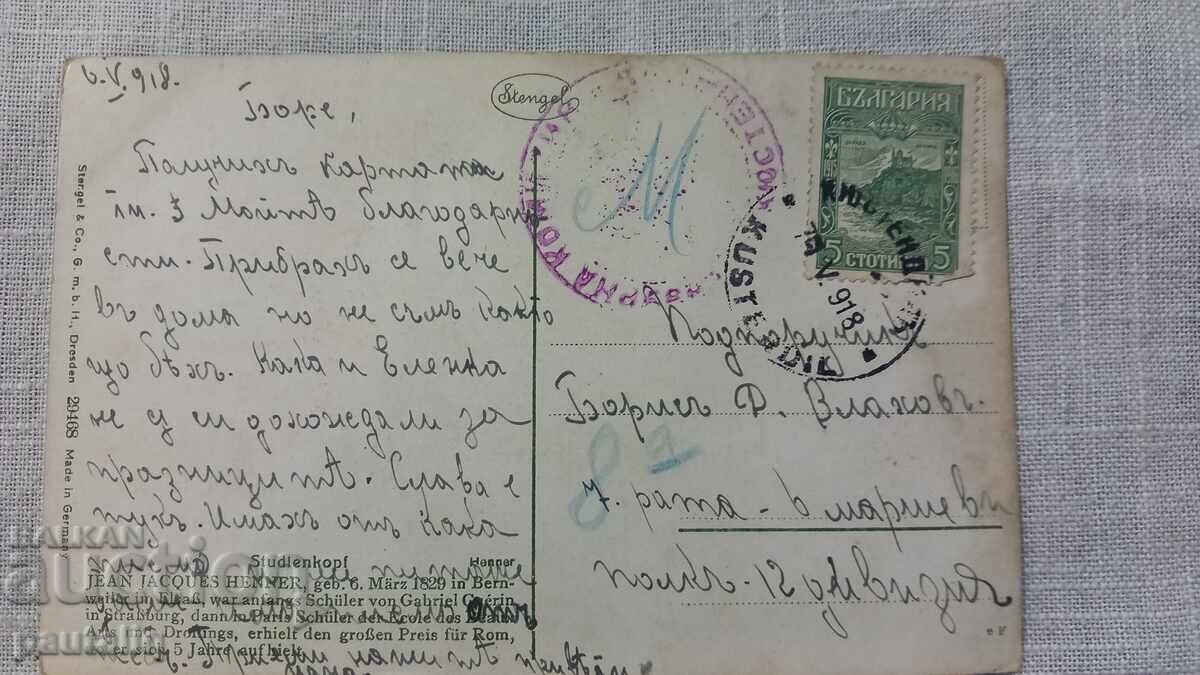 6.V.918.
Stengel
Боре,
Получихъ картата
ти. Мойтѣ благодарно
сти. Прибрахъ се вече
въ дома но не съмъ както
що бѣхъ. Кака и Еленка
не ѝ си дохождали за
празницитѣ. Слава е
тукъ. Имахъ отъ кака
писмо
Studienkopf Henner
JEAN JACQUES HENNER, geb. 6. März 1829 in Bern-
weiler im Elsaß, war anfangs Schüler von Gabriel Guérin
in Straßburg, dann in Paris Schüler der École des Beaux
Arts und Drollings, erhielt den großen Preis für Rom,
wo er sich 5 Jahre aufhielt.
нашитѣ
Stengel & Co., G. m. b. H., Dresden 29468 Made in Germany
М
БЪЛГАРИЯ
5 СТОТИНКИ 5
КЮСТЕНДИЛ
15.V.918
KUSTENDIL
Подпоручикъ
Борисъ Ф. Влаховъ.
87
7. рата - 6 маршеви
полкъ - 12 дивизия
e F
BALKAN
auction
pauralin